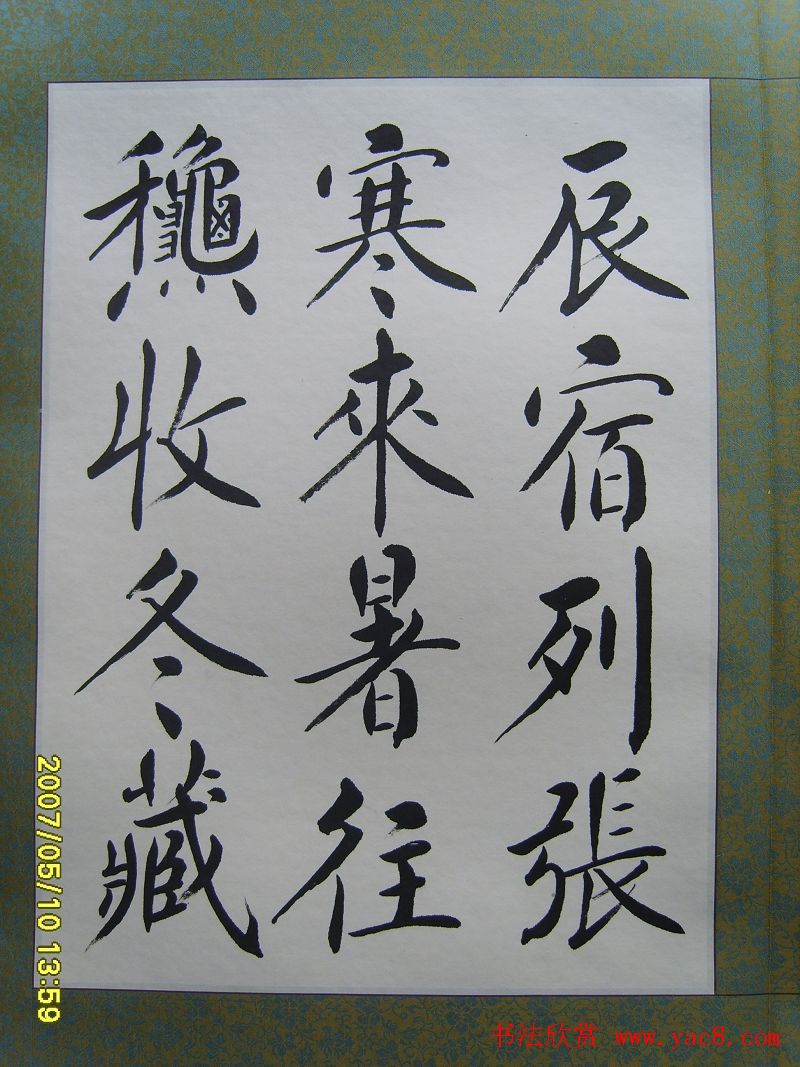 辰宿列張
寒來暑往
龝收冬藏
2007/05/10 13:59
书法欣赏 www.yac8.com